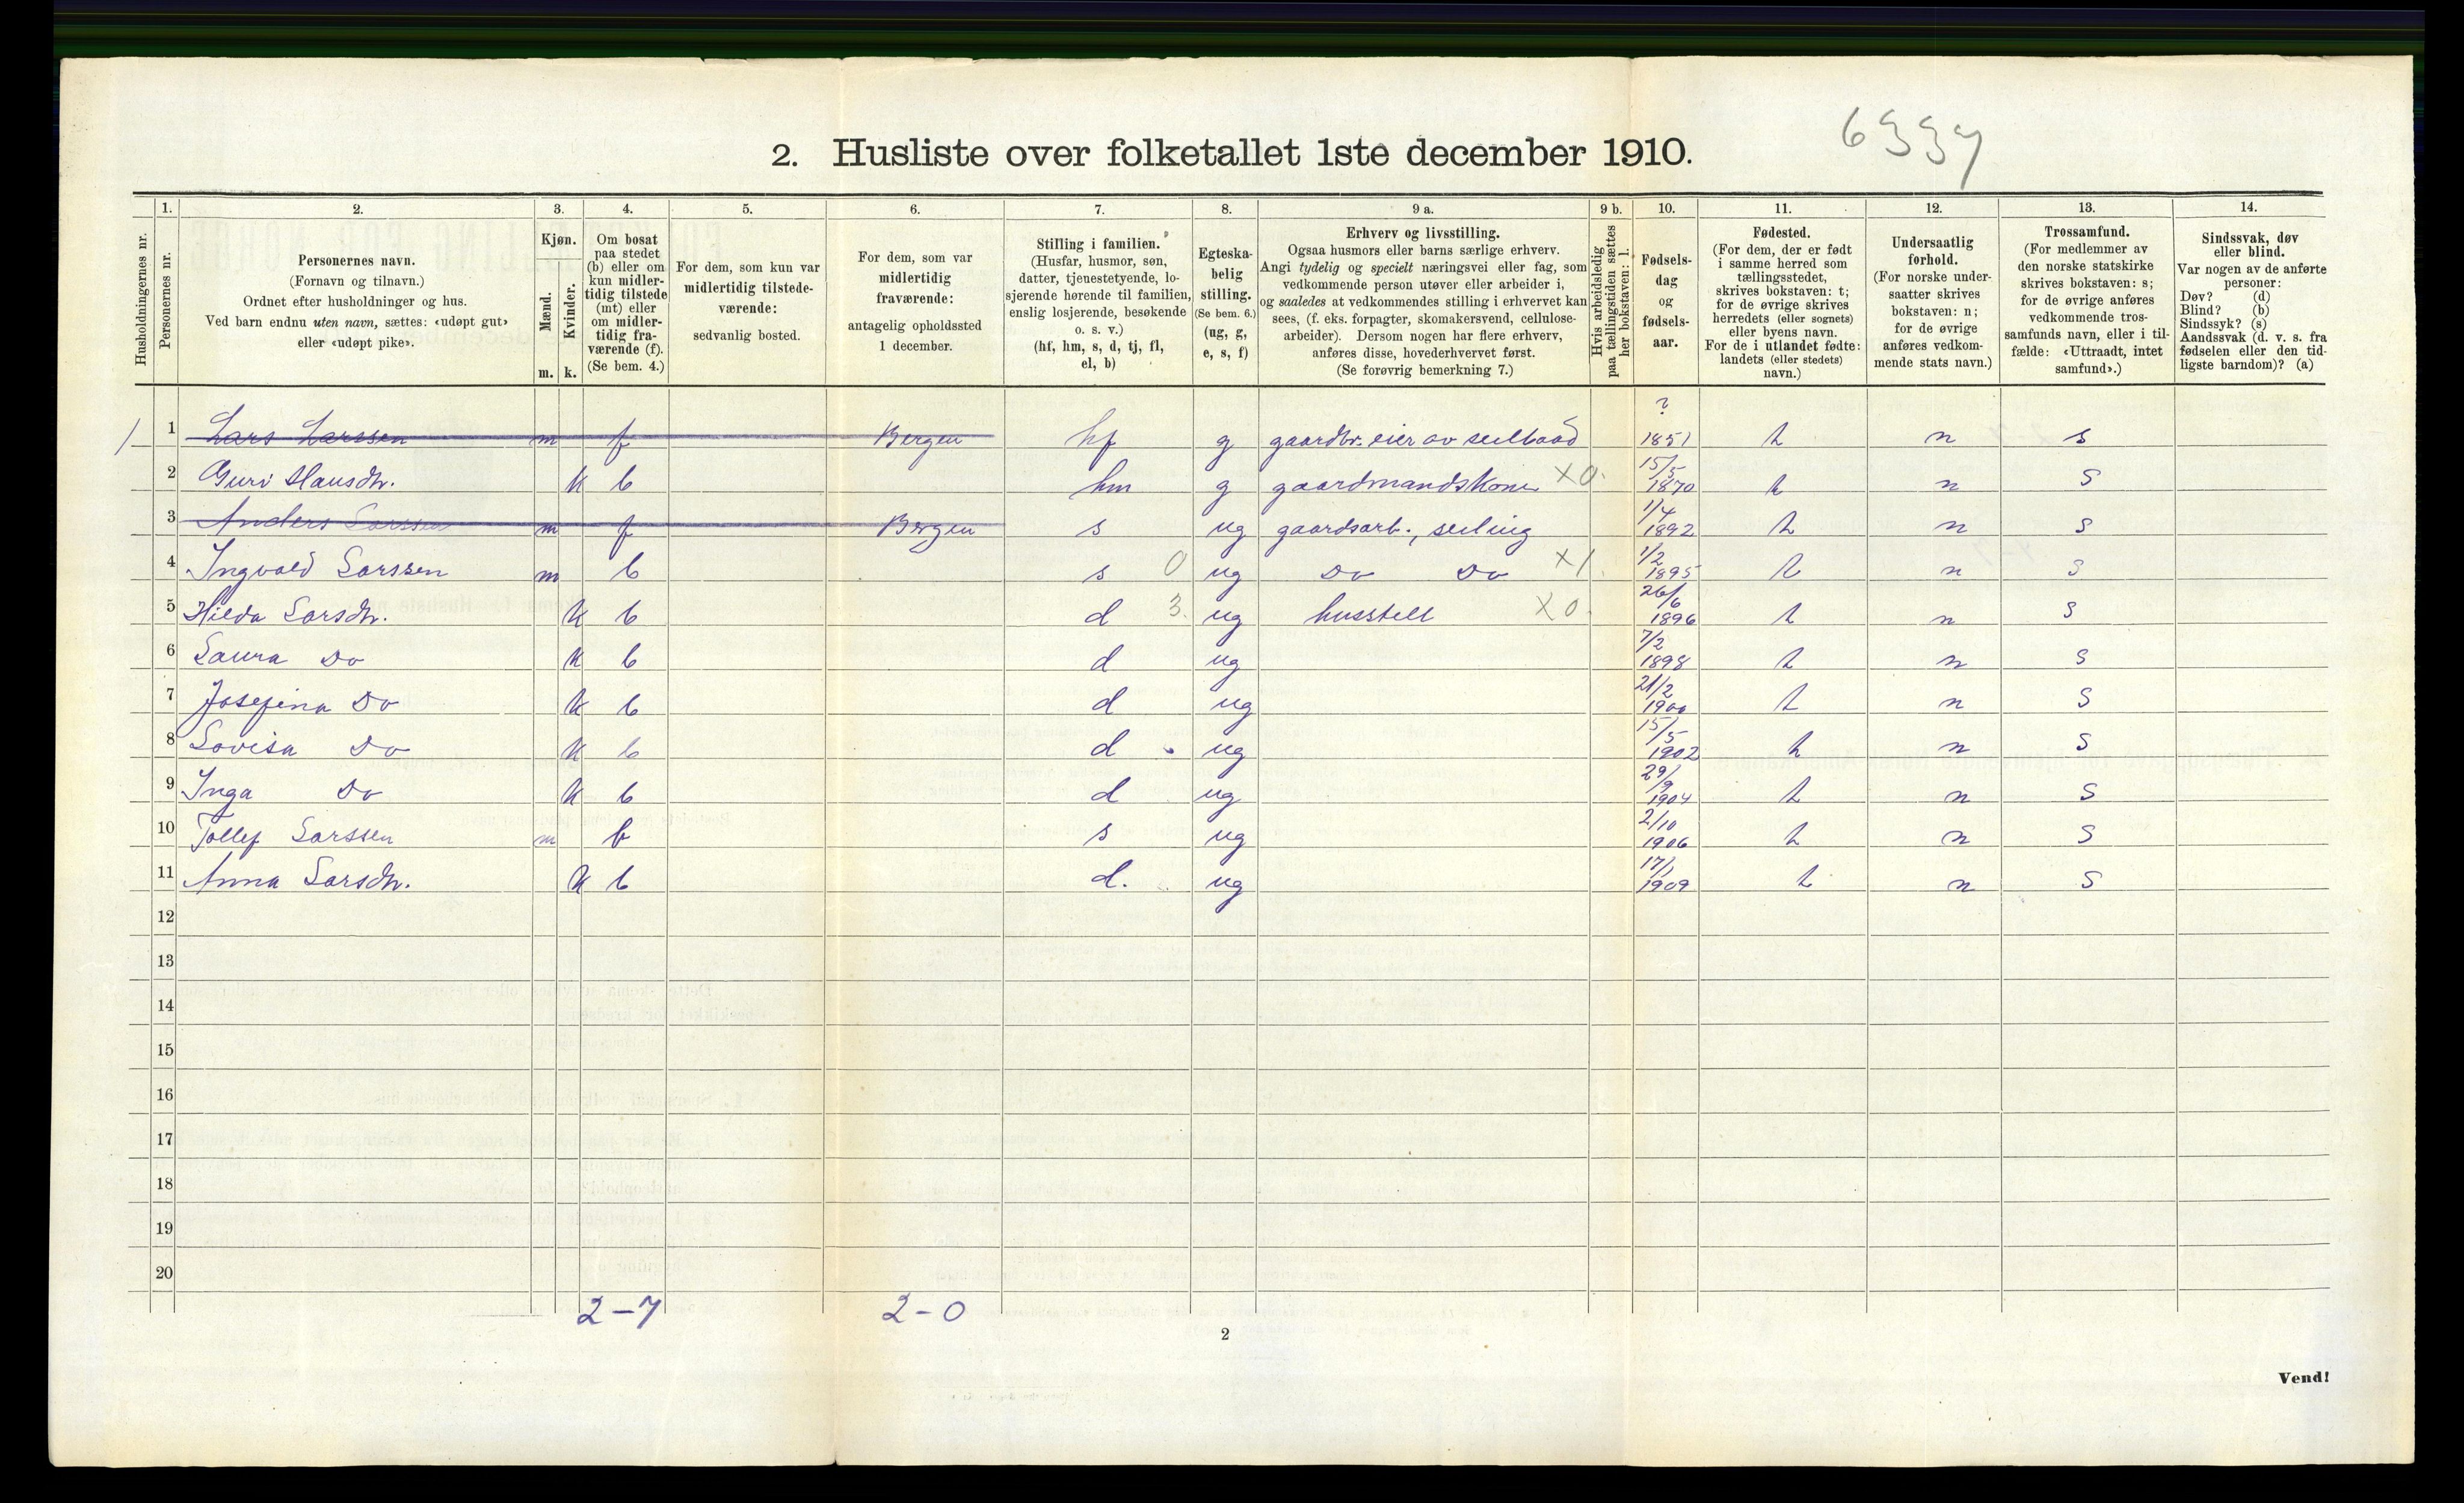 6339
2. Husliste over folketallet 1ste december 1910.
Husholdningernes nr.
1.
Personernes nr.
2.
Personernes navn.
(Fornavn og tilnavn.)
Ordnet efter husholdninger og hus.
Ved barn endnu uten navn, sættes: «udøpt gut»
eller «udøpt pike».
3.
Kjøn.
Mænd.
Kvinder.
m. k.
4.
Om bosat
paa stedet
(b) eller om
kun midler-
tidig tilstede
(mt) eller
om midler-
tidig fra-
værende (f).
(Se bem. 4.)
5.
For dem, som kun var
midlertidig tilstede-
værende:
sedvanlig bosted.
6.
For dem, som var
midlertidig
fraværende:
antagelig opholdssted
1 december.
7.
Stilling i familien.
(Husfar, husmor, søn,
datter, tjenestetyende, lo-
sjerende hørende til familien,
enslig losjerende, besøkende
o. s. v.)
(hf, hm, s, d, tj, fl,
el, b)
8.
Egteska-
belig
stilling.
(Se bem. 6.)
(ug, g,
e, s, f)
9 a.
Erhverv og livsstilling.
Ogsaa husmors eller barns særlige erhverv.
Angi tydelig og specielt næringsvei eller fag, som
vedkommende person utøver eller arbeider i,
og saaledes at vedkommendes stilling i erhvervet kan
sees, (f. eks. forpagter, skomakersvend, cellulose-
arbeider). Dersom nogen har flere erhverv,
anføres disse, hovederhvervet først.
(Se forøvrig bemerkning 7.)
9 b.
Hvis arbeidsledig
paa tællingstiden sættes
her bokstaven: l.
10.
Fødsels-
dag
og
fødsels-
aar.
11.
Fødested.
(For dem, der er født
i samme herred som
tællingsstedet,
skrives bokstaven: t;
for de øvrige skrives
herredets (eller sognets)
eller byens navn.
For de i utlandet fødte:
landets (eller stedets)
navn.)
12.
Undersaatlig
forhold.
(For norske under-
saatter skrives
bokstaven: n;
for de øvrige
anføres vedkom-
mende stats navn.)
13.
Trossamfund.
(For medlemmer av
den norske statskirke
skrives bokstaven: s;
for de øvrige anføres
vedkommende tros-
samfunds navn, eller i til-
fælde: «Uttraadt, intet
samfund».)
14.
Sindssvak, døv
eller blind.
Var nogen av de anførte
personer:
Døv? (d)
Blind? (b)
Sindssyk? (s)
Aandssvak (d. v. s. fra
fødselen eller den tid-
ligste barndom)? (a)
1 1 Lars Larssen m f Bergen hf g gaardbr. eier av seilbaad ? 1851 t n s
2 Guri Hansdtr. k b hm g gaardmandskone x0. 15/5 1870 t n s
3 Anders Larssen m f Bergen s ug gaardsarb., seiling 1/4 1892 t n s
4 Ingvald Larssen m b s 0 ug Do Do x1. 1/2 1895 t n s
5 Hilda Larsdtr. k b d 3. ug husstell x0. 26/6 1896 t n s
6 Laura Do k b d ug 7/2 1898 t n s
7 Josefina Do k b d ug 21/2 1900 t n s
8 Lovisa Do k b d ug 15/5 1902 t n s
9 Inga Do k b d ug 29/9 1904 t n s
10 Tollef Larssen m b s ug 2/10 1906 t n s
11 Anna Larsdtr. k b d. ug 17/1 1909 t n s
12
13
14
15
16
17
18
19
20
2-7 2-0
2
Vend!